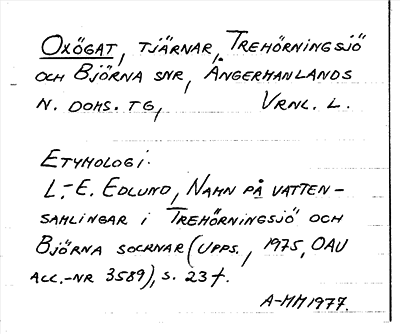 OXÖGAT, TJÄRNAR, TREHÖRNINGSJÖ
OCH BJÖRNA SNR, ÅNGERMANLANDS
N. DOMS. TG, VRNL. L.
ETYMOLOGI:
L.-E. EDLUND, NAMN PÅ VATTEN-
SAMLINGAR I TREHÖRNINGSJÖ OCH
BJÖRNA SOCKNAR (UPPS., 1975, OAU
ACC.-NR 3589), S. 23 f.
A-MM 1977.